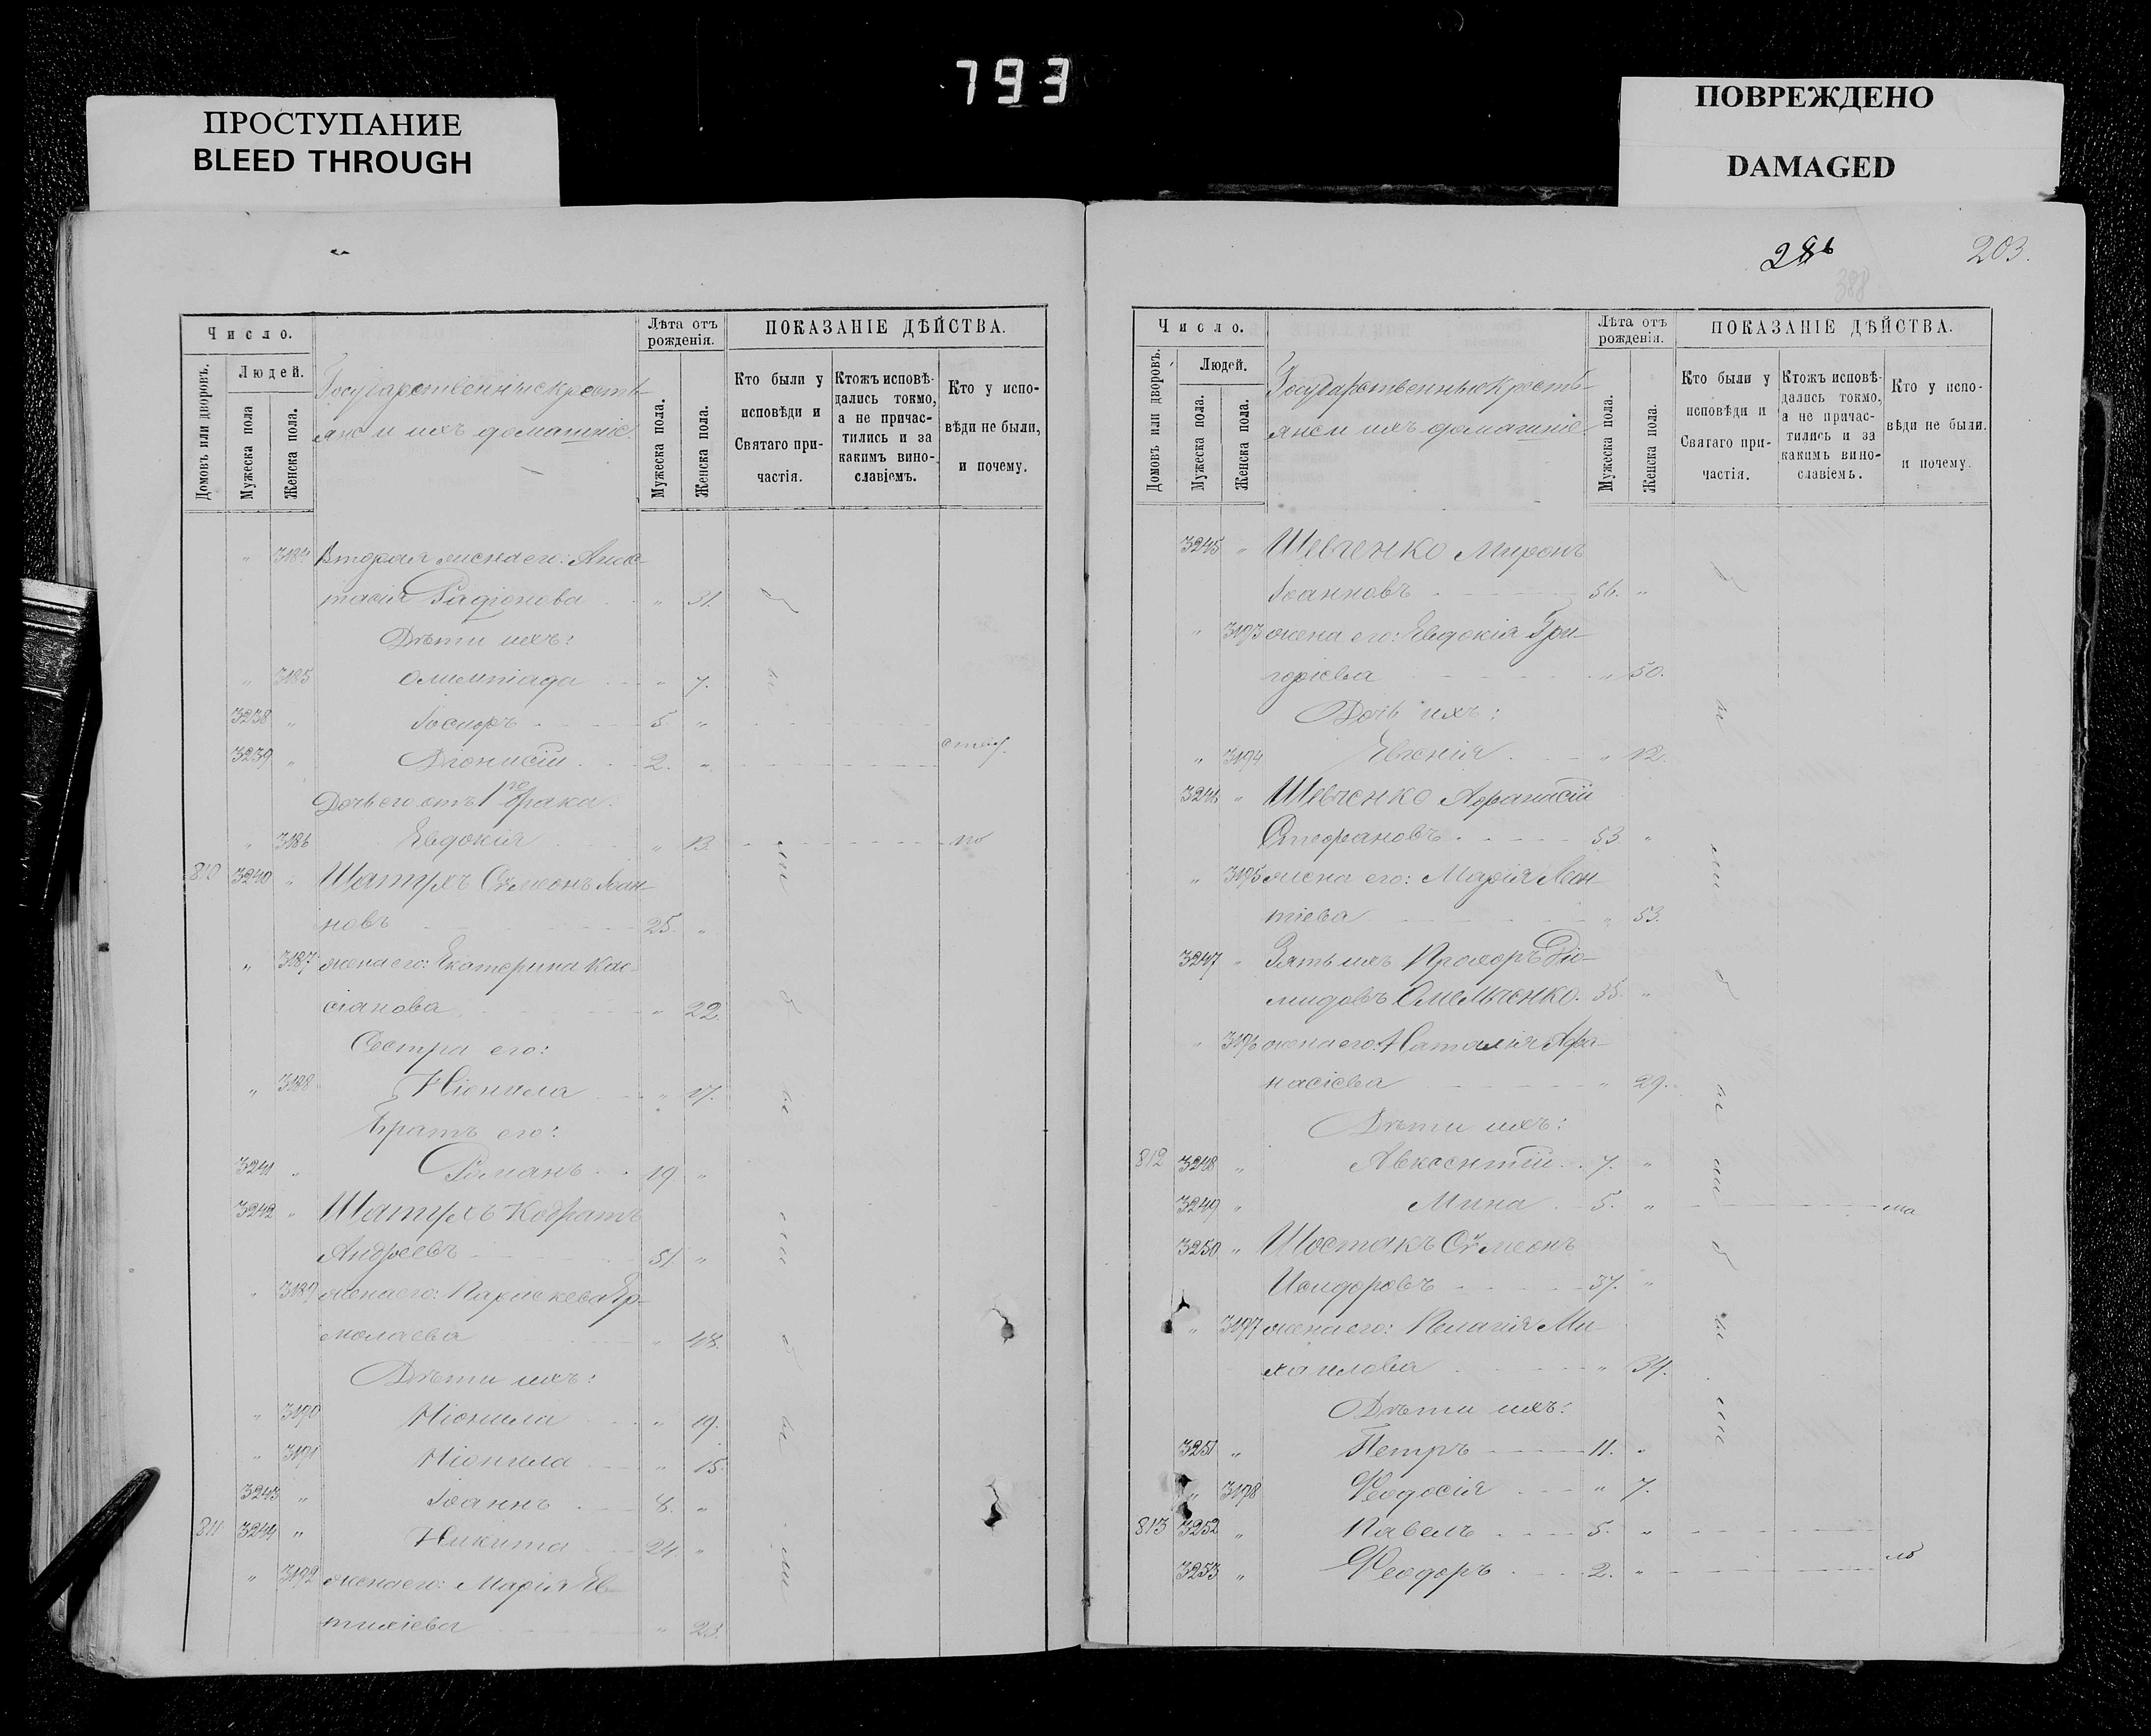 793
ПРОСТУПАНИЕ
BLEED THROUGH
ПОВРЕЖДЕНО
DAMAGED
Число.
Домовъ или дворовъ.
Людей.
Мужеска пола
Женска пола.
Государственные кресть-
яне и ихъ домашніе.
Лѣта отъ
рожденія.
Мужеска пола.
Женска пола.
ПОКАЗАНІЕ ДѢЙСТВА.
Кто были у
исповѣди и
Святаго при-
частія.
Ктожъ исповѣ-
дались токмо,
а не причас-
тились и за
какимъ вино-
славіемъ.
Кто у испо-
вѣди не были,
и почему.
„ 3184 Вторая жена его: Анас-
тасія Радіонова „ 31.
Дѣти ихъ:
„ 3185 Олимпіада „ 7.
3238 „ Іосифъ 5 „
3239 „ Діонисій 2. „
Дочь его отъ 1го брака:
„ 3186 Евдокія „ 13. по
810 3240 „ Шатухъ Сѵмеонъ Іоан-
новъ 25. „
„ 3187 жена его: Екатерина Кас-
сіанова „ 22.
Сестра его:
„ 3188 Ніонила „ 17.
Братъ его:
3241 „ Романъ 19 „
3242 „ Шатухъ Кодратъ
Андреевъ 51 „
„ 3189 жена его: Параскева Ер-
молаева „ 48.
Дѣти ихъ:
„ 3190 Ніонила „ 19.
„ 3191 Ніонила „ 15.
3243 „ Іоаннъ 8. „
811 3244 „ Никита 24. „
„ 3192 жена его: Марія Ев-
тихіева „ 23.
203.
388
Число.
Домовъ или дворовъ.
Людей.
Мужеска пола.
Женска пола.
Государственные кресть-
яне и ихъ домашніе.
Лѣта отъ
рожденія.
Мужеска пола.
Женска пола.
ПОКАЗАНІЕ ДѢЙСТВА.
Кто были у
исповѣди и
Святаго при-
частія.
Ктожъ исповѣ-
дались токмо,
а не причас-
тились и за
какимъ вино-
славіемъ.
Кто у испо-
вѣди не были.
и почему.
3245 „ Шевченко Миронъ
Іоанновъ 56. „
„ 3193 жена его: Евдокія Гри-
горіева „ 50.
Дочь ихъ:
„ 3194 Евгенія „ 12.
3246 „ Шевченко Афанасій
Стефановъ 53 „
„ 3195 жена его: Марія Леон-
тіева „ 53.
3247 „ Зять ихъ Прохоръ Діо-
мидовъ Омельченко. 35. „
„ 3196 жена его: Наталія Афа-
насіева „ 29.
Дѣти ихъ:
812 3248 „ Авксентій 7. „
3249 „ Мина 5. „
3250 „ Шостакъ Сѵмеонъ
Исидоровъ 37. „
„ 3197 жена его: Пелагія Ми-
хаилова „ 34.
Дѣти ихъ:
3251 „ Петръ 11. „
„ 3198 Феодосія „ 7.
813 3252 „ Павелъ 5. „
3253 „ Феодоръ 2. „